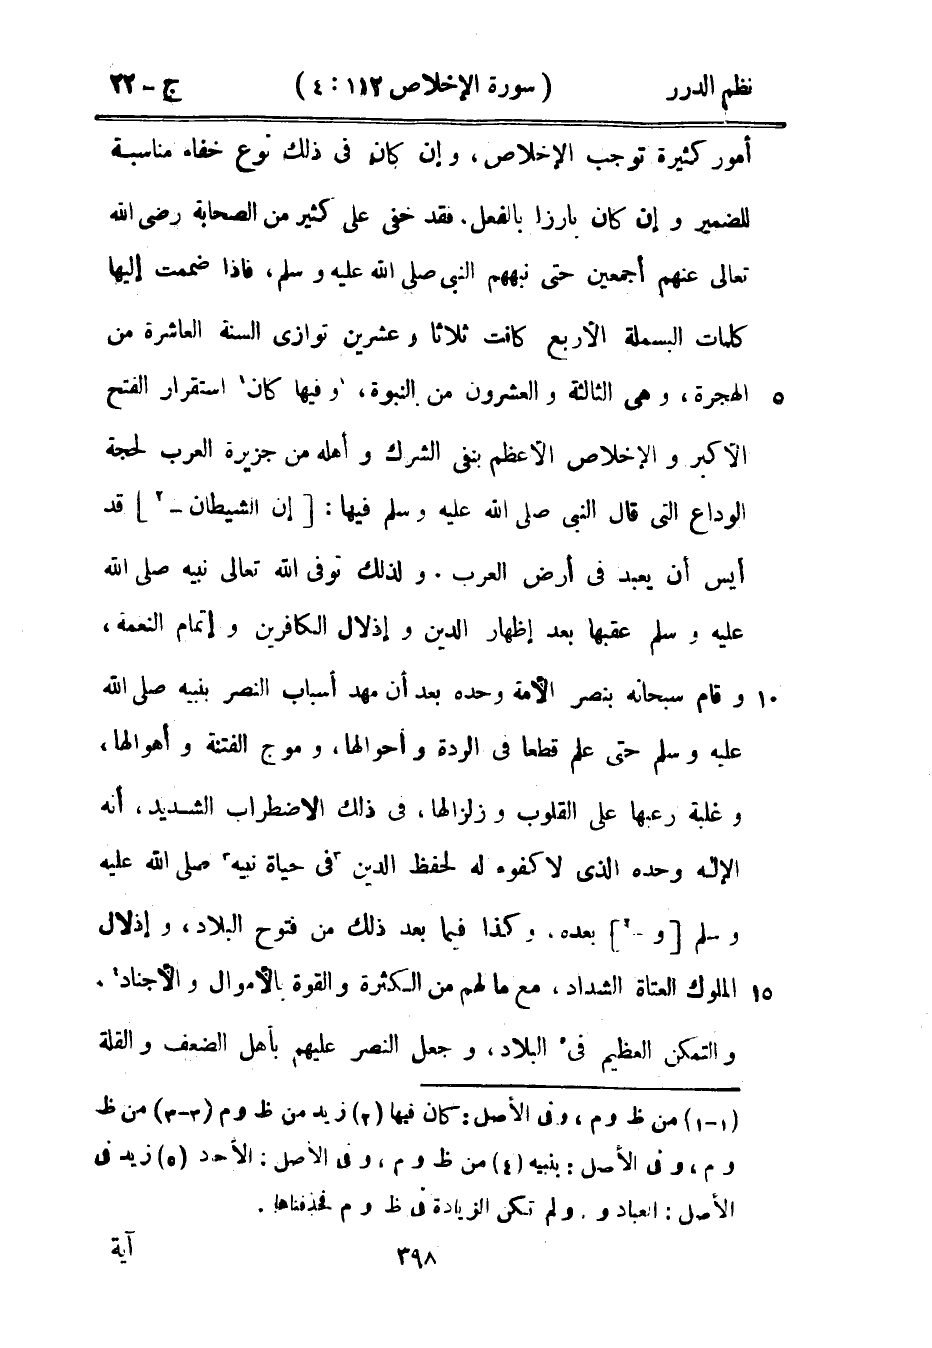 نظم الدرر ( سورة الإخلاص ١١٢ : ٤ ) ج - ٢٢
أمور كثيرة توجب الإخلاص ، و إن كان فى ذلك نوع خفاء مناسبة
للضمير و إن كان بارزا بالفعل . فقد خفى على كثير من الصحابة رضى الله
تعالى عنهم أجمعين حتى نبههم النبى صلى الله عليه و سلم ، فاذا ضممت إليها
كلمات البسملة الأربع كانت ثلاثا و عشرين توازى السنة العاشرة من
الهجرة ، و هى الثالثة و العشرون من النبوة ، ١و فيها كان١ استقرار الفتح ٥
الأكبر و الإخلاص الأعظم بنفى الشرك و أهله من جزيرة العرب لحجة
الوداع التى قال النبى صلى الله عليه و سلم فيها : [ إن الشيطان - ٢ ] قد
أيس أن يعبد فى أرض العرب . و لذلك توفى الله تعالى نبيه صلى الله
عليه و سلم عقبها بعد إظهار الدين و إذلال الكافرين و إتمام النعمة ،
و قام سبحانه بنصر الأمة وحده بعد أن مهد أسباب النصر بنبيه صلى الله ١٠
عليه و سلم حتى علم قطعا فى الردة و أحوالها ، و موج الفتنة و أهوالها ،
و غلبة رعبها على القلوب و زلزالها ، فى ذلك الاضطراب الشديد ، أنه
الإلٰه وحده الذى لا كفوء له لحفظ الدين ٣فى حياة نبيه٣ صلى الله عليه
و سلم [ و - ٢ ] بعده . و كذا فيما بعد ذلك من فتوح البلاد ، و إذلال
الملوك العتاة الشداد ، مع ما لهم من الكثرة و القوة بالأموال و الأجناد٤ . ١٥
و التمكن العظيم فى٥ البلاد ، و جعل النصر عليهم بأهل الضعف و القلة
(١-١) من ظ و م ، و فى الأصل : كان فيها (٢) زيد من ظ و م (٣-٣) من ظ
و م ، و فى الأصل : بنبيه (٤) من ظ و م ، و فى الأصل : الأحد (٥) زيد فى
الأصل : العباد و . و لم تكن الزيادة فى ظ و م فحذفناها .
٣٩٨ آية